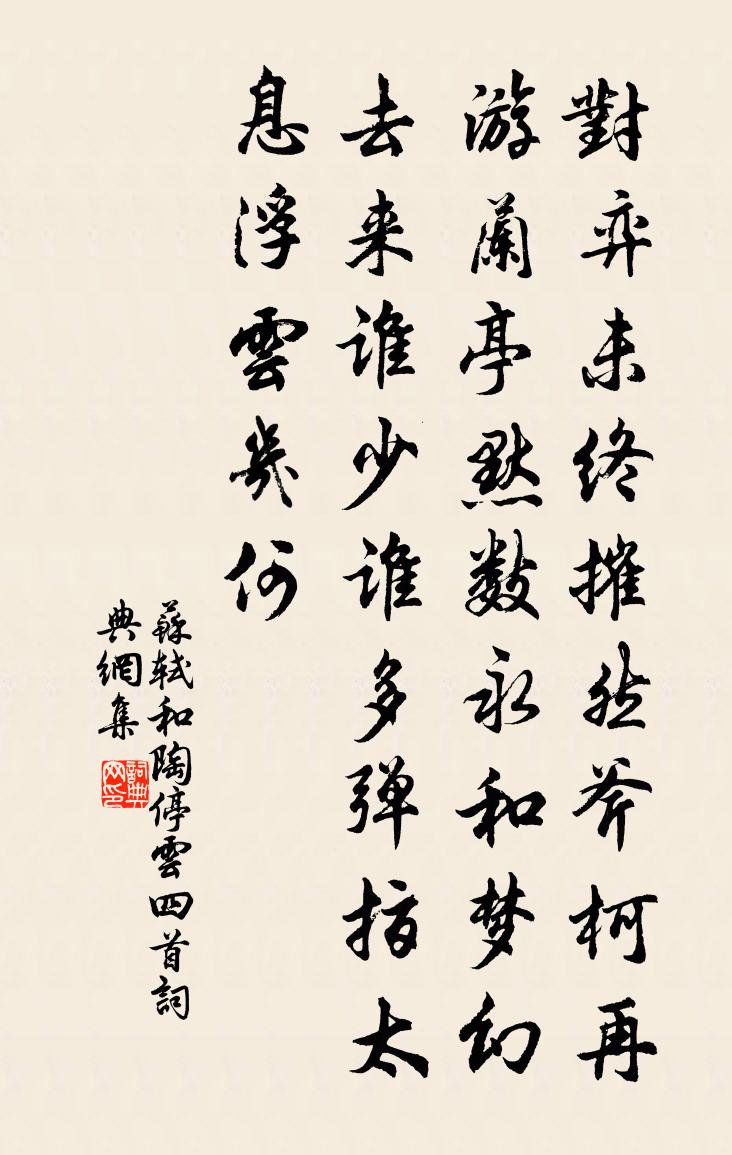 對弈未終摧然斧柯再
游蘭亭默數永和夢幻
去来誰少誰多彈指太
息浮雲幾何
蘇軾和陶停雲四首詞
典網集
詞典
网印